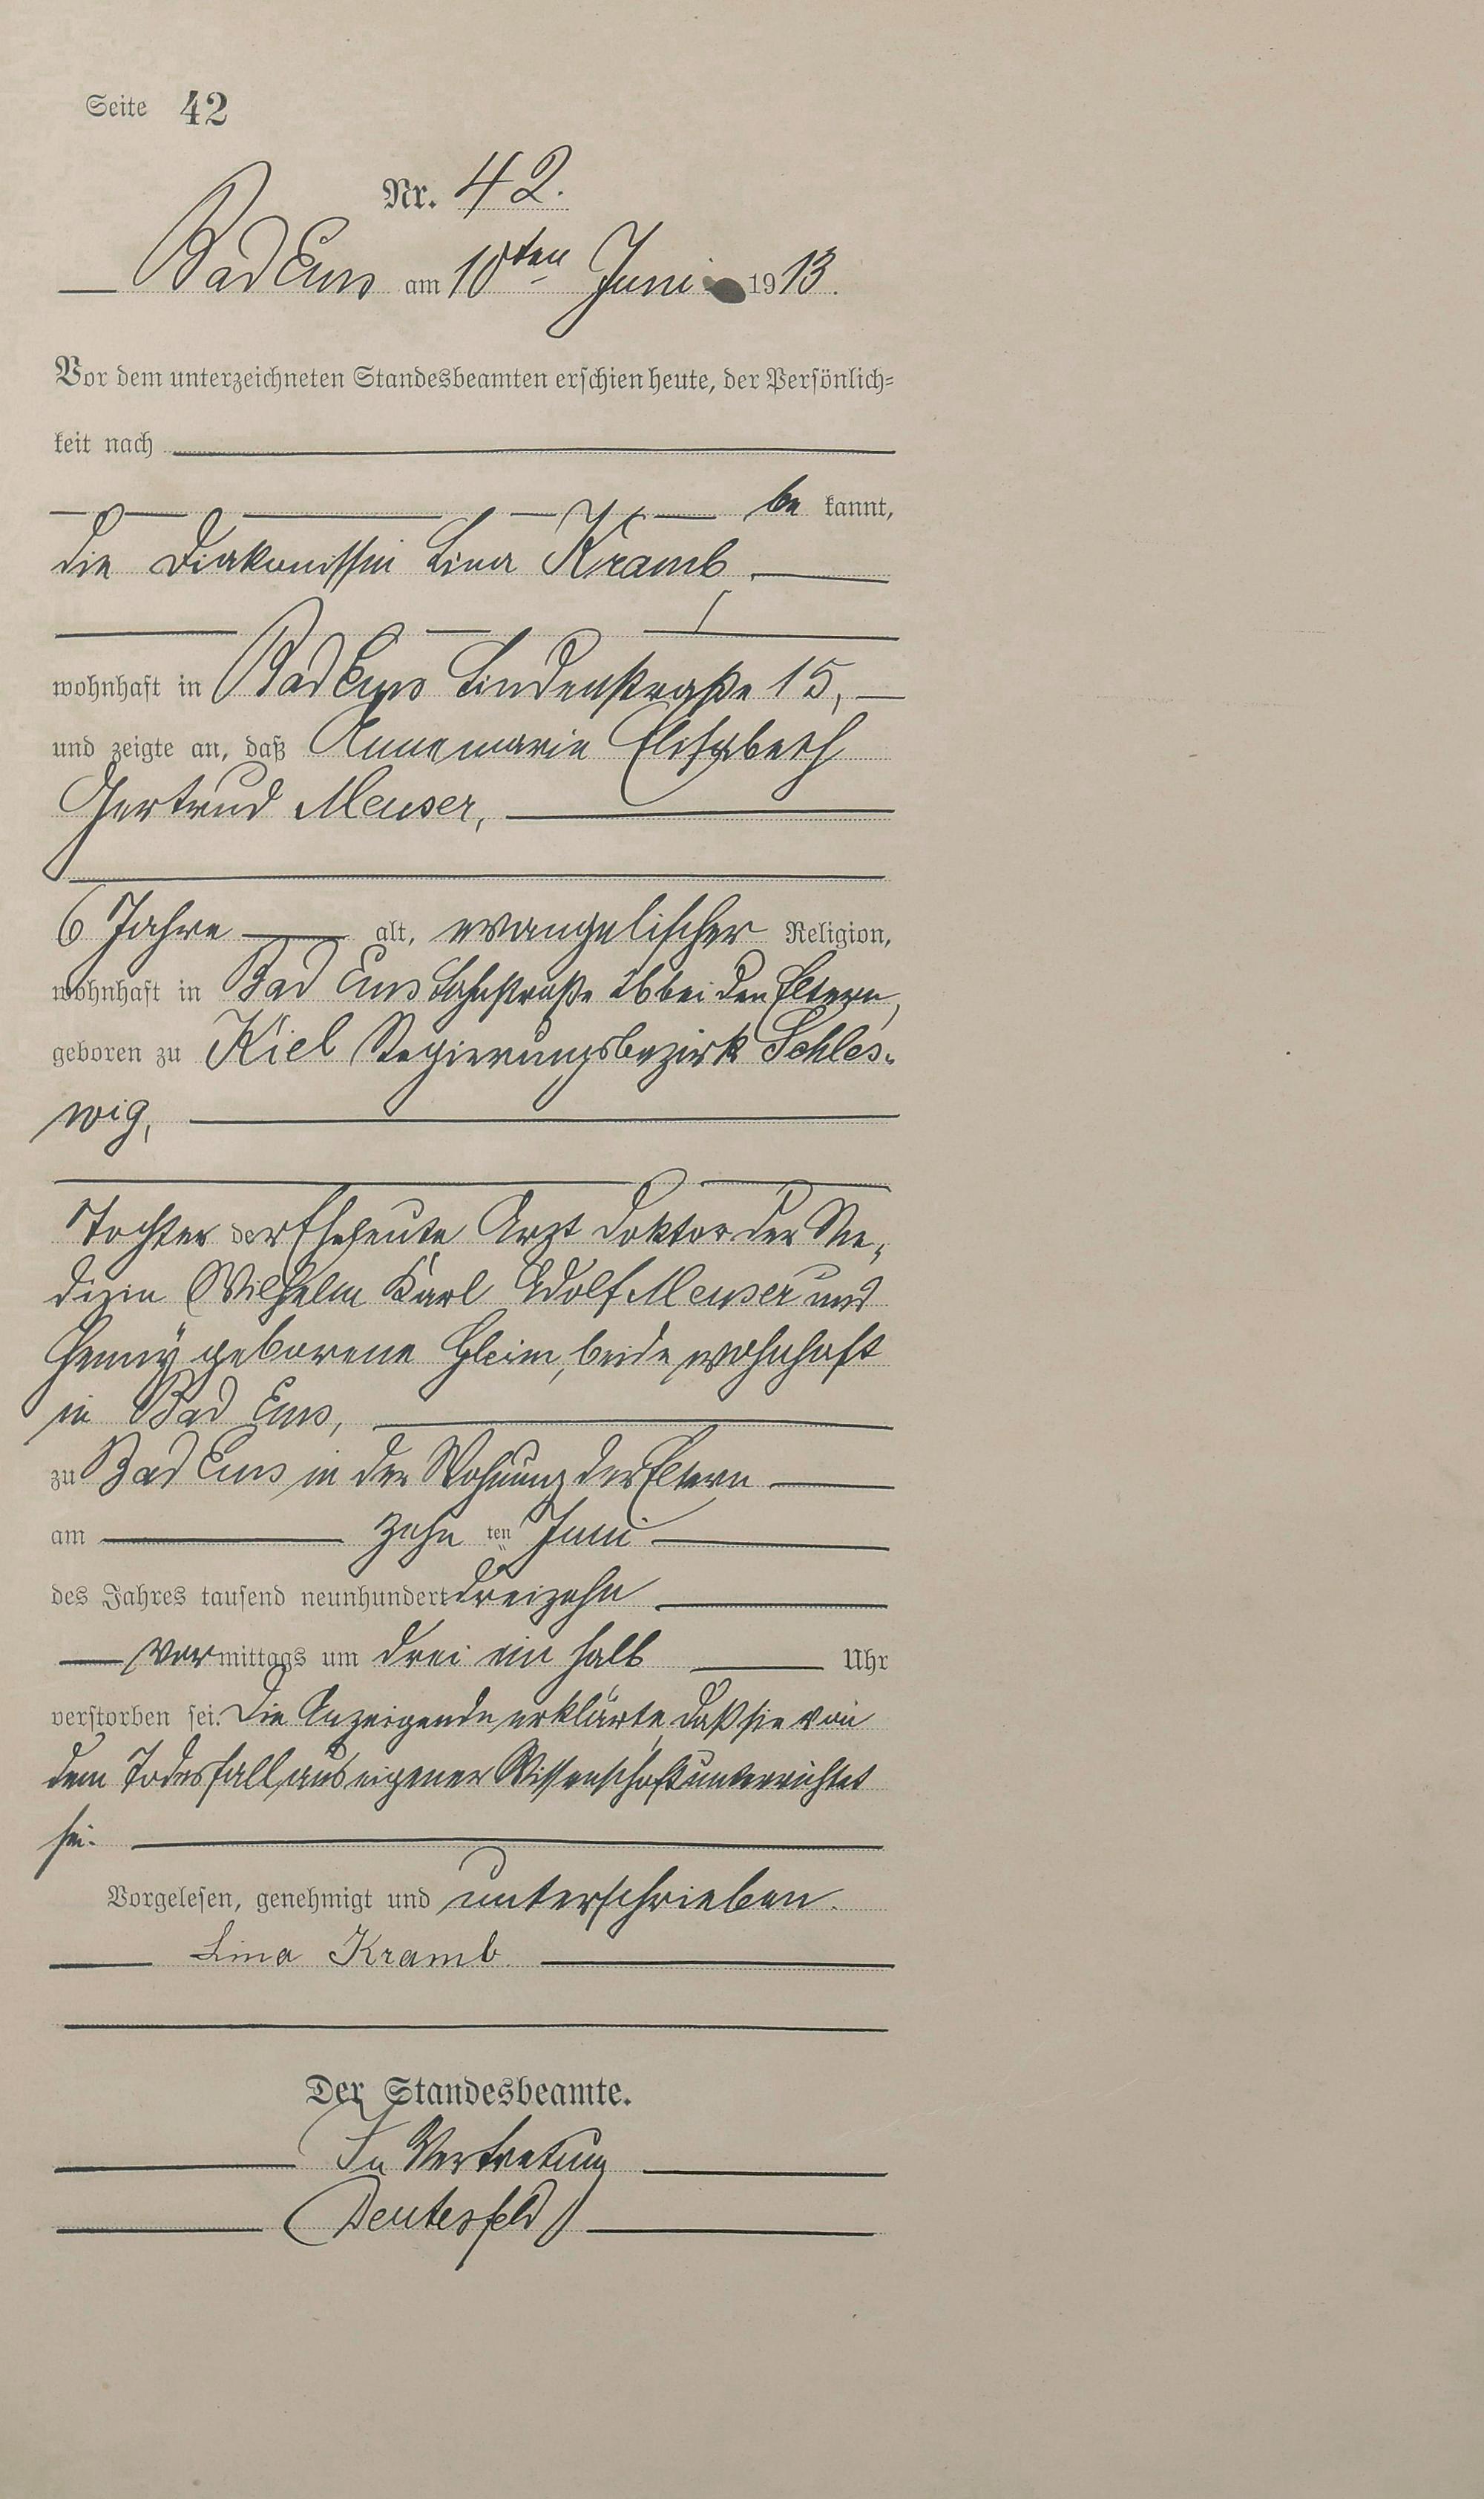 Seite 42
Nr. 42.
Bad Ems am 10ten Juni 1913.
Vor dem unterzeichneten Standesbeamten erschien heute, der Persönlich-
keit nach
be kannt,
die Diakonissin Lina Kramb
wohnhaft in Bad Ems Lindenstraße 15,
und zeigte an, daß Annemarie Elisabeth
Gertrud Meuser,
6 Jahre alt, evangelischer Religion,
wohnhaft in Bad Ems Lahnstraße 26 bei den Eltern,
geboren zu Kiel Regierungsbezirk Schles-
wig,
Tochter der Eheleute Arzt Doktor der Me-
dizin Wilhelm Karl Adolf Meuser und
Henny geborene Gleim, beide wohnhaft
in Bad Ems,
zu Bad Ems in der Wohnung der Eltern
am zehn ten Juni
des Jahres tausend neunhundert dreizehn
vor mittags um drei ein halb Uhr
verstorben sei. Die Anzeigende erklärte, daß sie von
dem Todesfall aus eigener Wissenschaft unterrichtet
sei.
Vorgelesen, genehmigt und unterschrieben.
Lina Kramb.
Der Standesbeamte.
In Vertretung